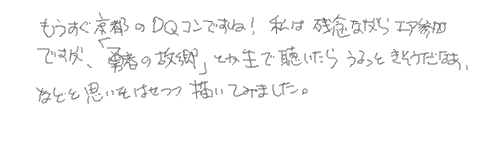 もうすぐ京都のDQコンですね！私は残念ながらエア参加
ですが、「勇者の故郷」とか生で聴いたらうるっときそうだなぁ、
などと思いをはせつつ描いてみました。